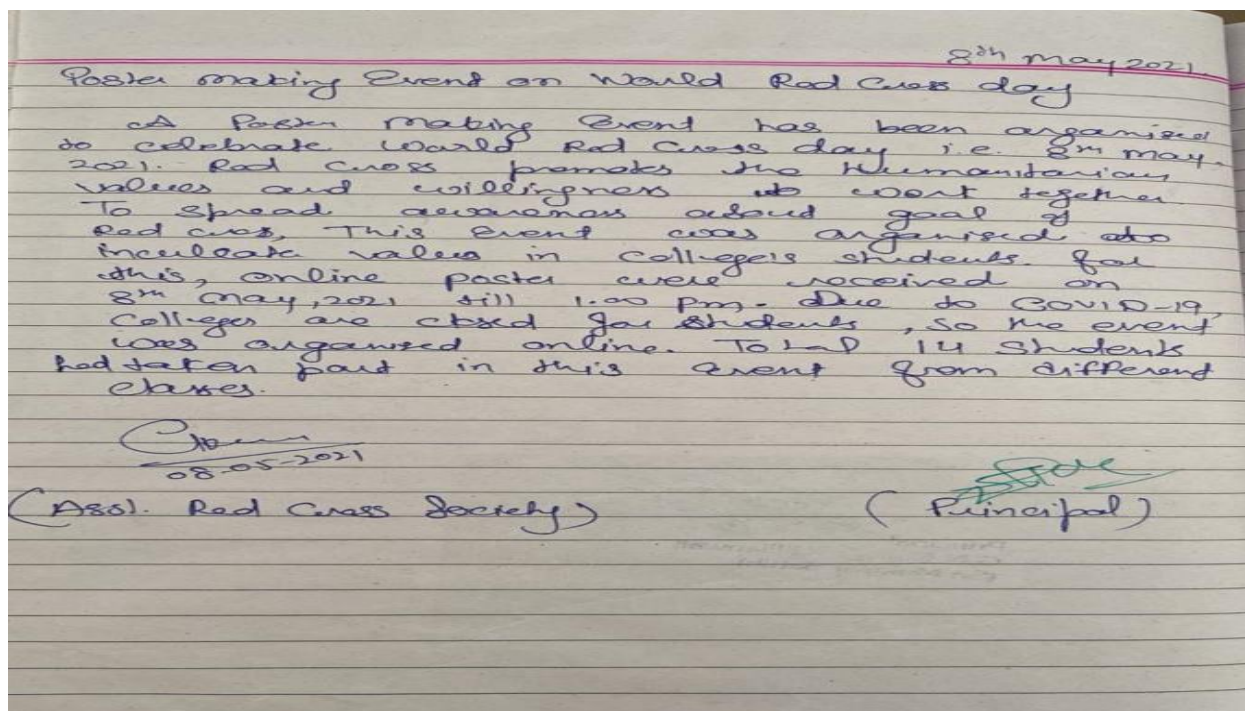 8th May 2021.
Poster making Event on World Red Cross day
A Poster making Event has been organised
to celebrate World Red Cross day i.e. 8th May.
2021. Red Cross promotes the Humanitarian
values and willingness to work together.
To spread awareness about goal of
Red cross, This event was organised to
inculcate values in college's students. For
this, online poster were received on
8th May, 2021 till 1.00 Pm. Due to COVID-19,
Colleges are closed for students, so the event
was organised online. Total 14 students
had taken part in this event from different
classes.
08-05-2021
(Asst. Red Cross Society)
(Principal)